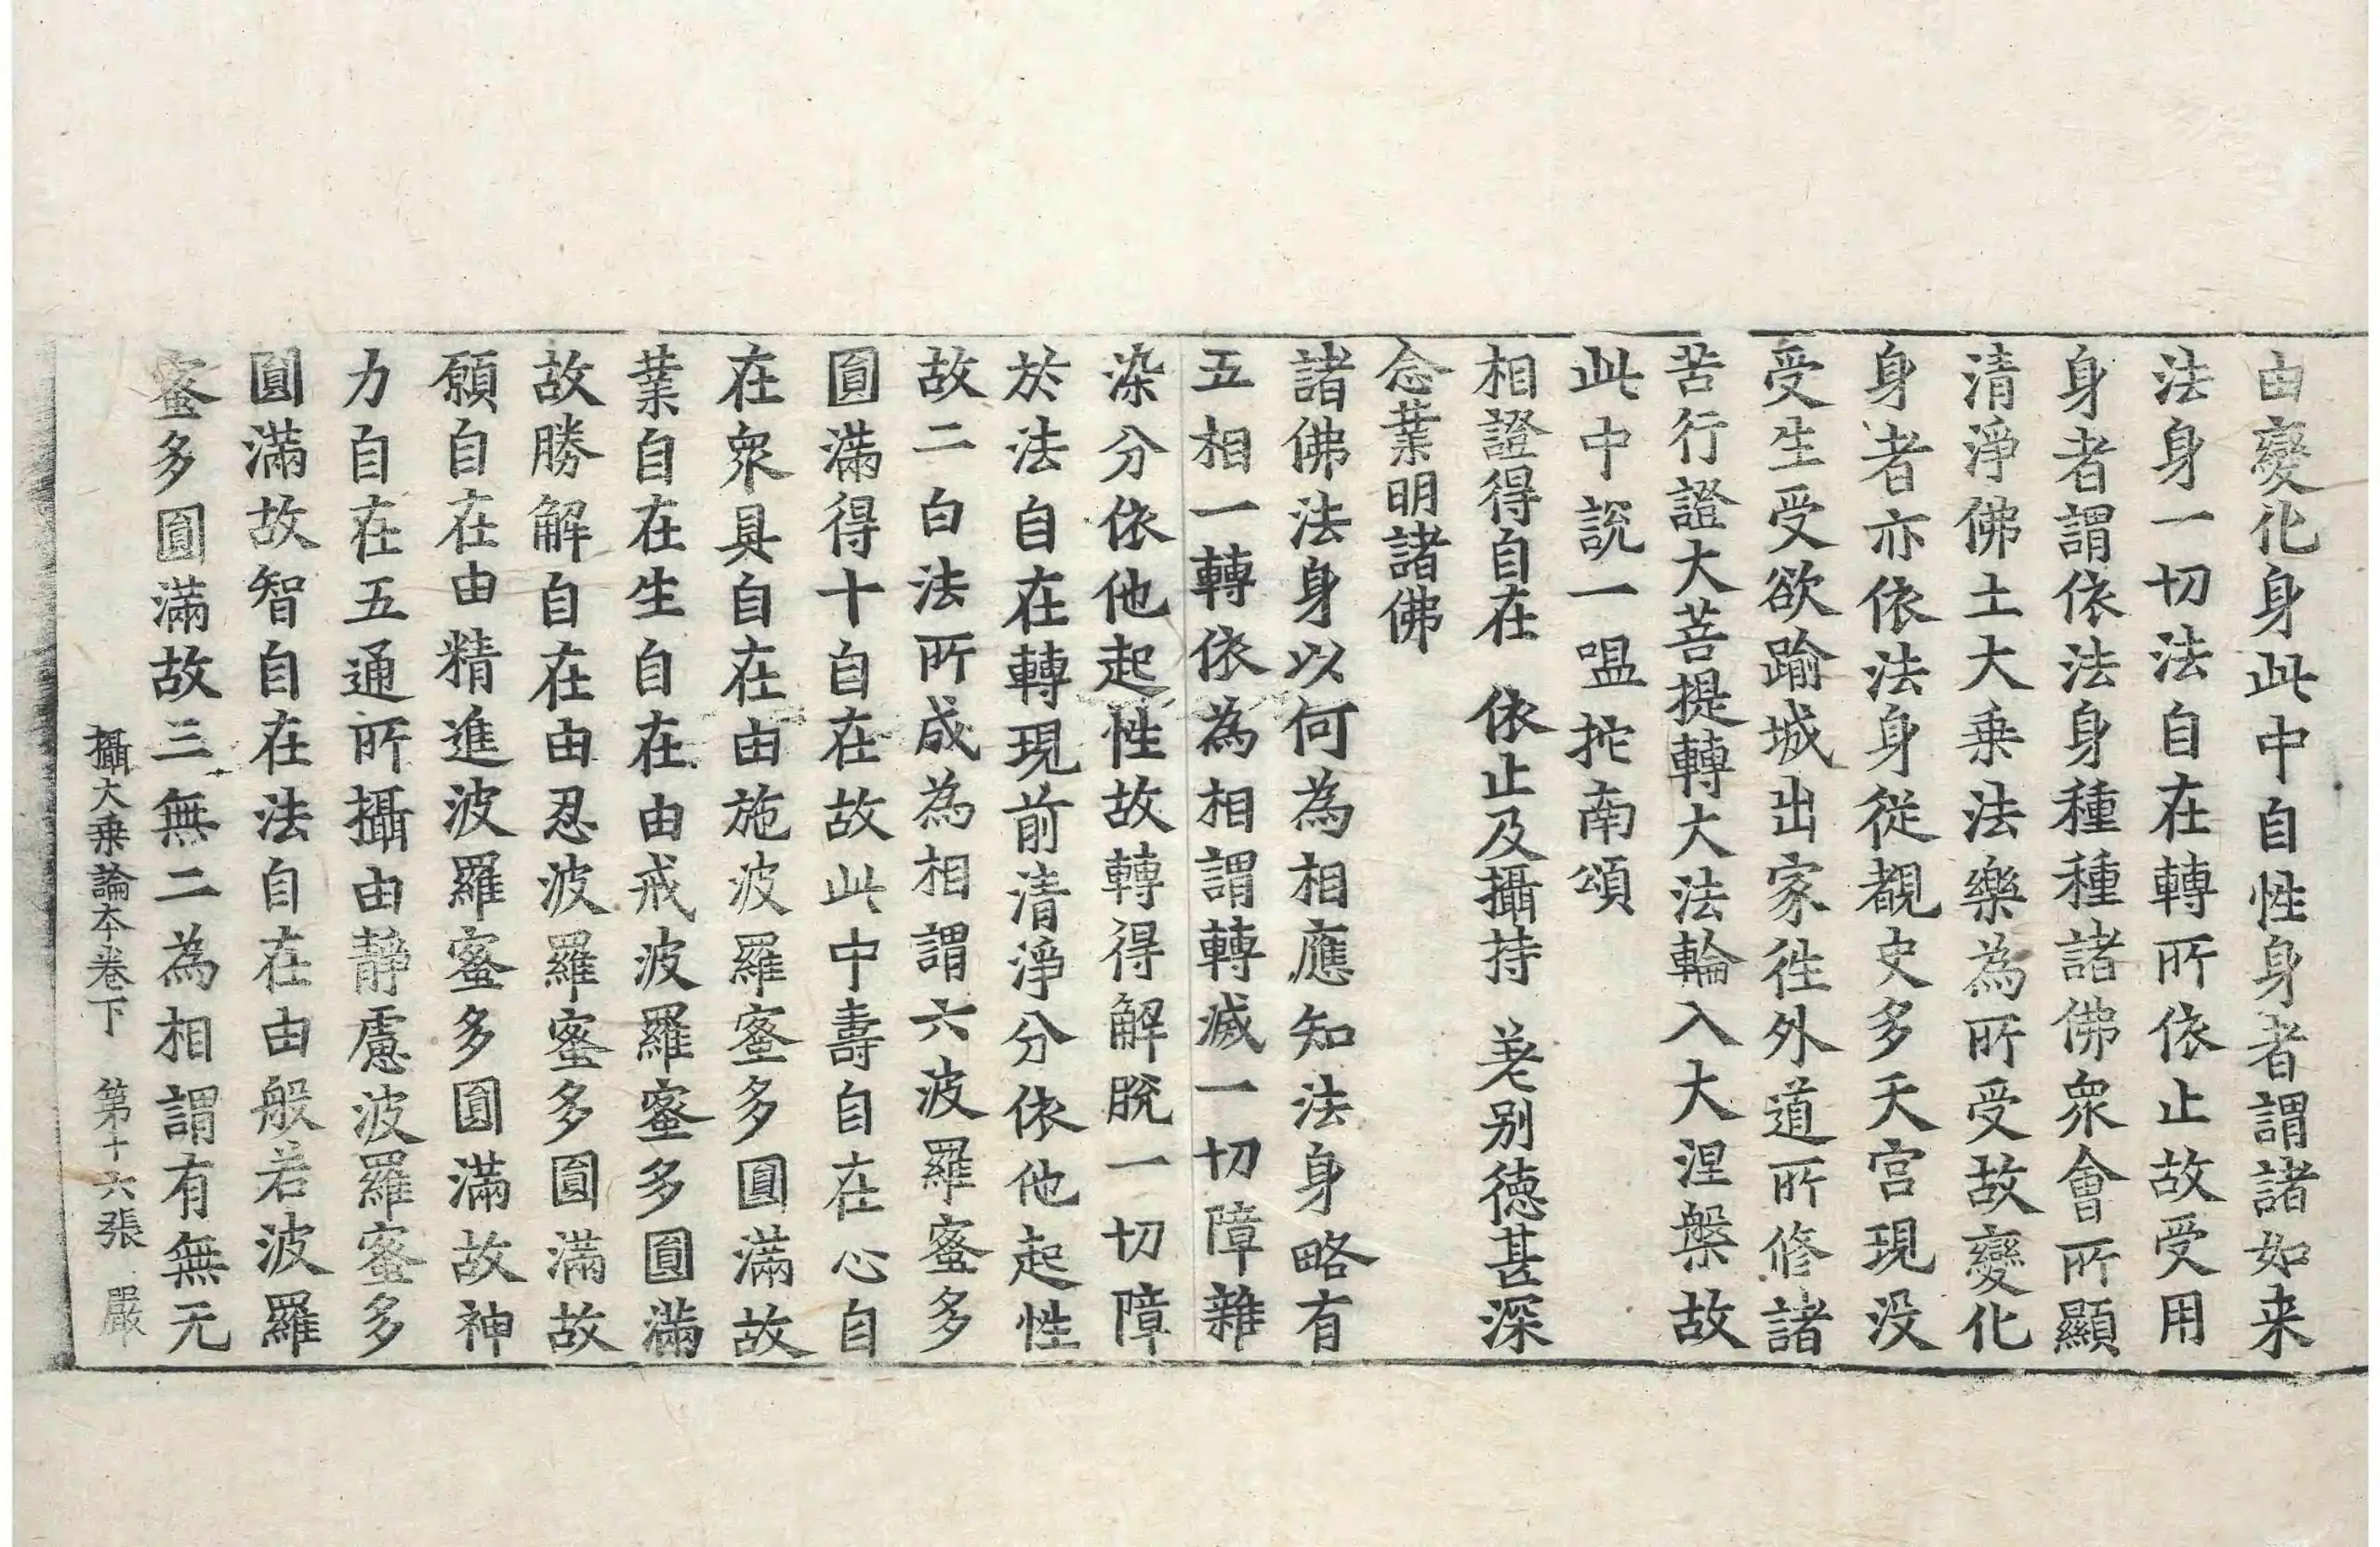 由變化身此中自性身者謂諸如来
法身一切法自在轉所依止故受用
身者謂依法身種種諸佛衆會所顯
清淨佛土大乗法樂為所受故變化
身者亦依法身從覩史多天宮現没
受生受欲踰城出家徃外道所修諸
苦行證大菩提轉大法輪入大涅槃故
此中說一嗢拕南頌
相證得自在　依止及攝持　差别德甚深
念業明諸佛
諸佛法身以何為相應知法身略有
五相一轉依為相謂轉滅一切障雜
染分依他起性故轉得解脫一切障
於法自在轉現前清淨分依他起性
故二白法所成為相謂六波羅蜜多
圓滿得十自在故此中壽自在心自
在衆具自在由施波羅蜜多圓滿故
業自在生自在由戒波羅蜜多圓滿
故勝解自在由忍波羅蜜多圓滿故
願自在由精進波羅蜜多圓滿故神
力自在五通所攝由靜慮波羅蜜多
圓滿故智自在法自在由般若波羅
蜜多圓滿故三無二為相謂有無无
攝大乗論本卷下　第十六張　嚴